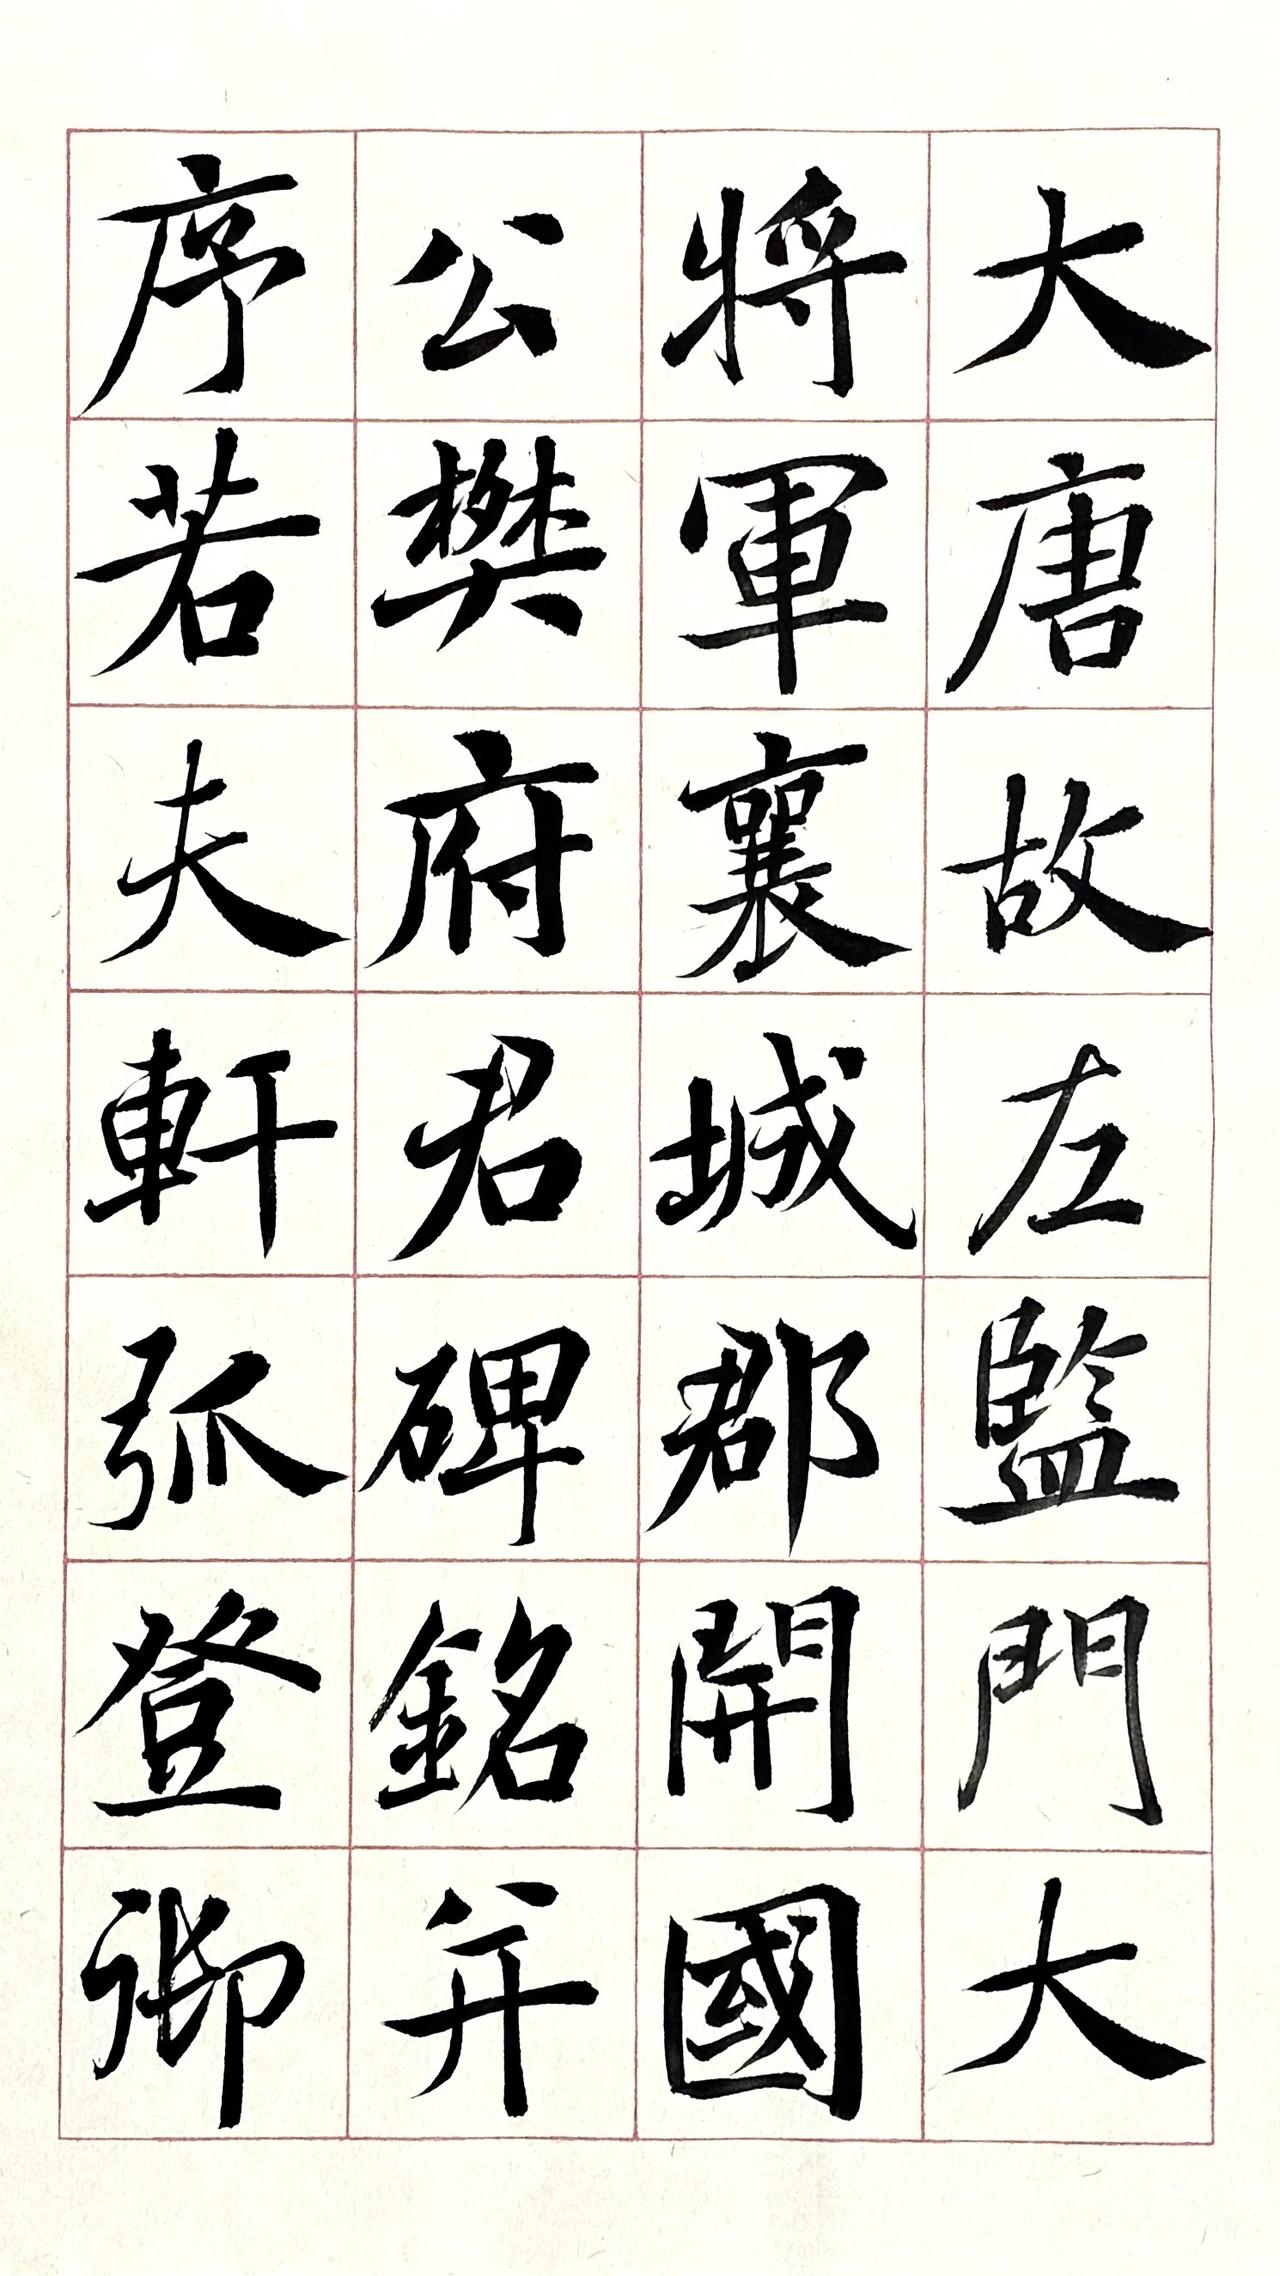 大唐故左監門大
將軍襄城郡開國
公樊府君碑銘并
序若夫軒弧登御